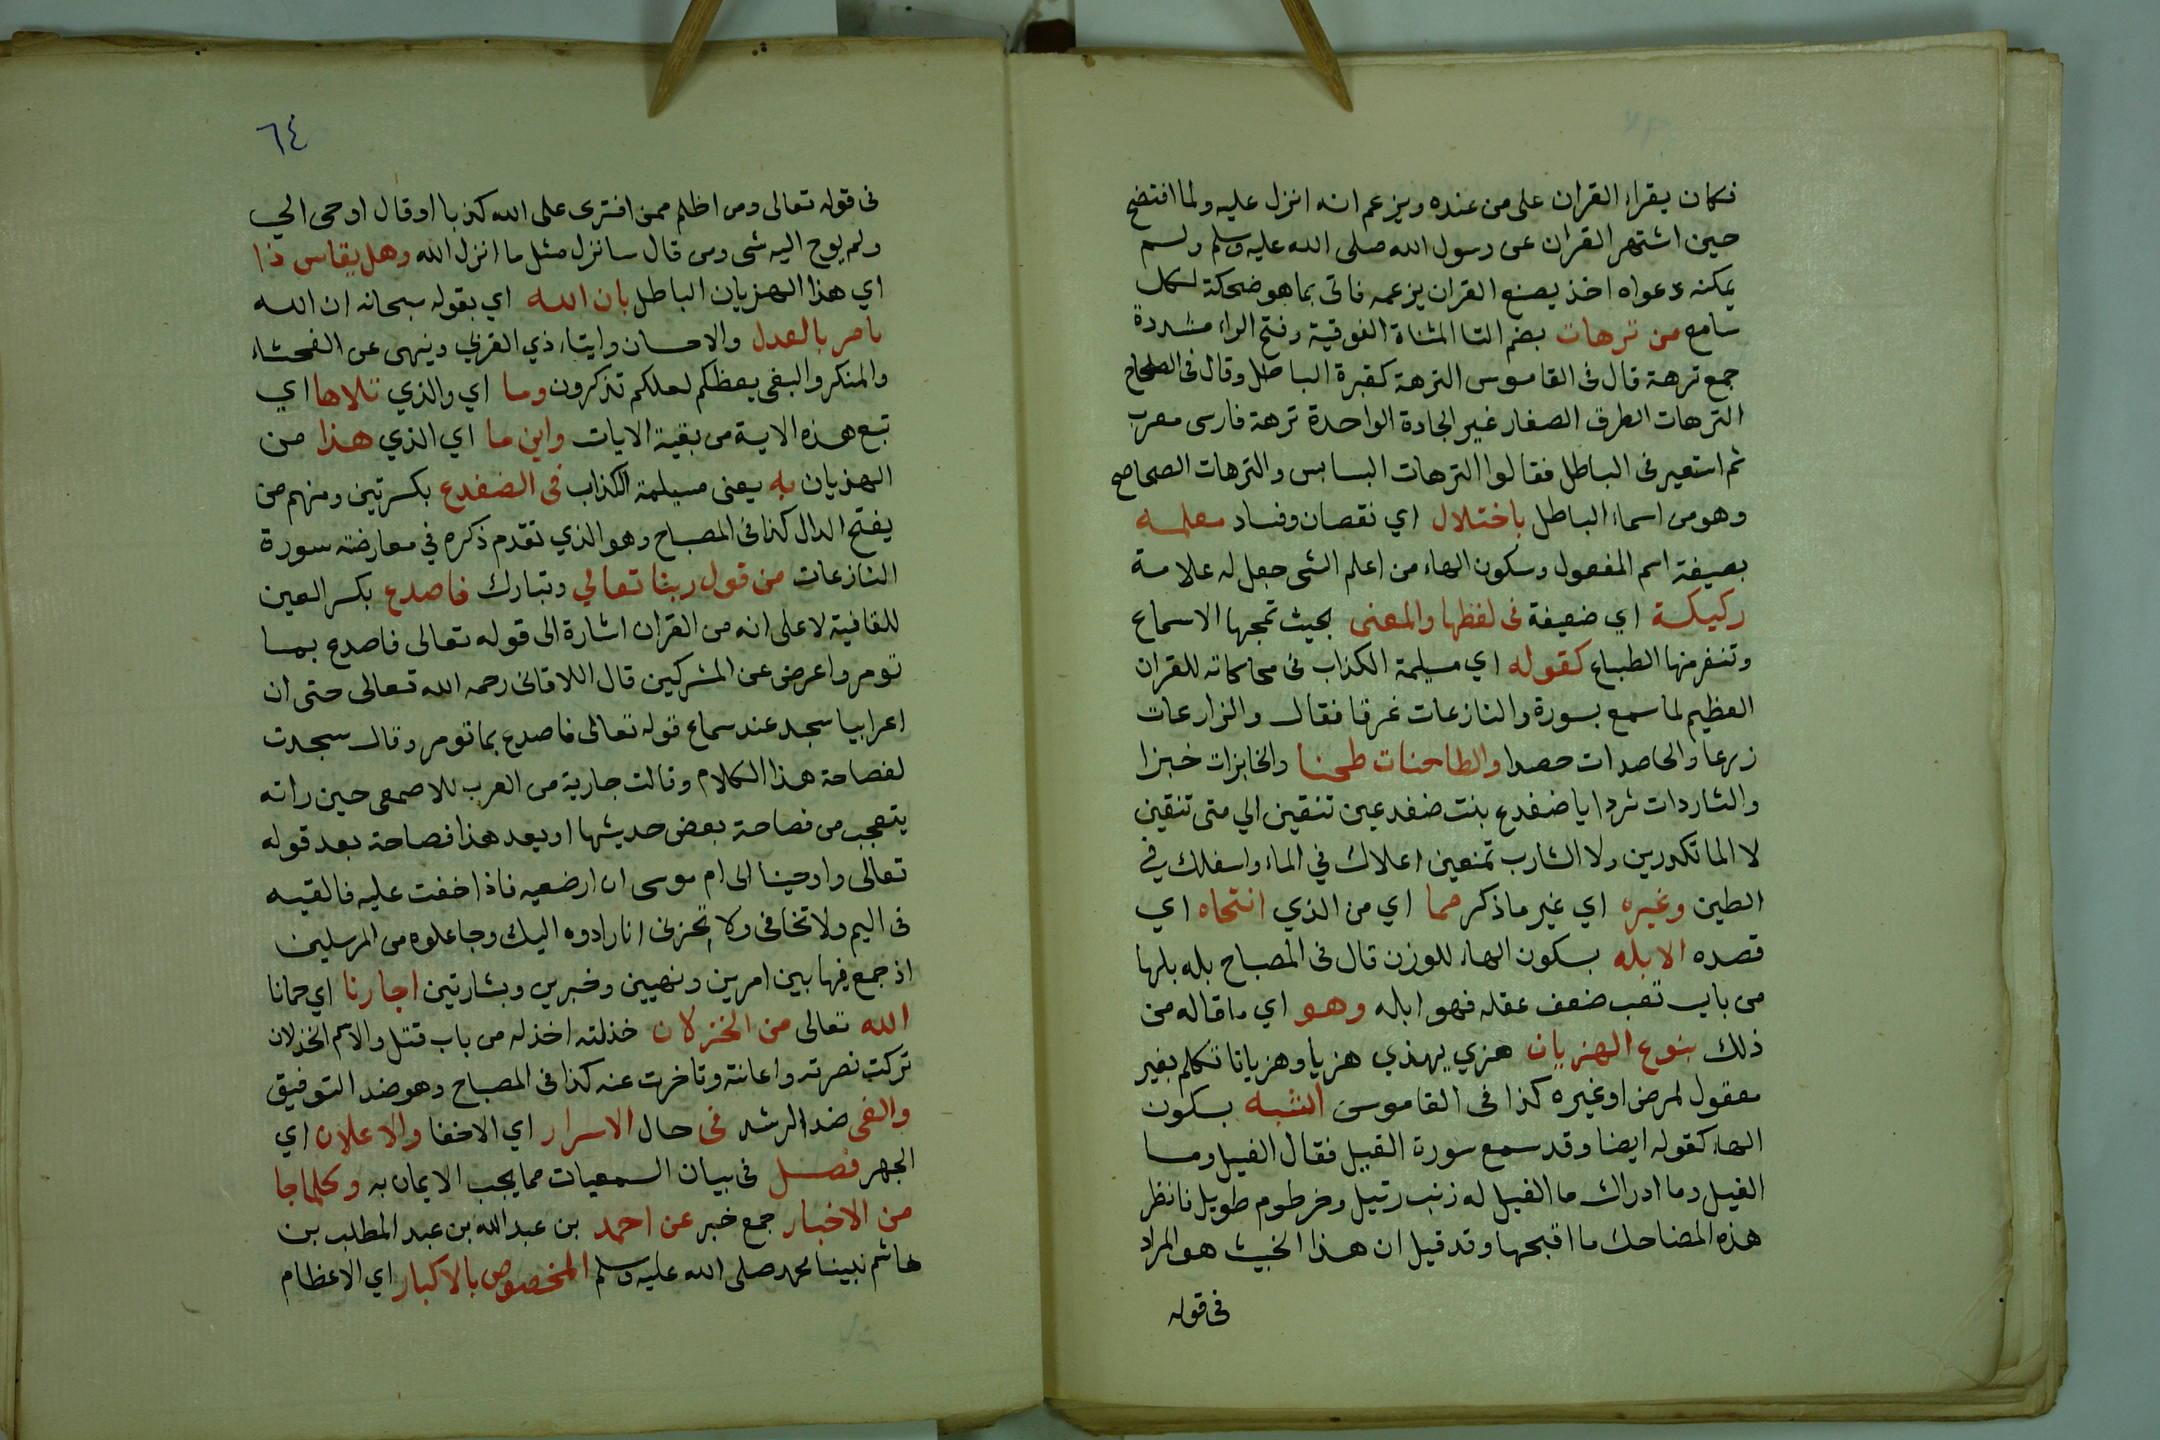 فكان يقراء القران على من عنده ويزعم انه انزل عليه ولما افتضح
حين اشتهر القران عن رسول الله صلى الله عليه وسلم ولم
يمكنه دعواه اخذ يصنع القران بزعمه فاتى بما هو ضحكة لكل
سامع من ترهات بضم التا المثناة الفوقية وفتح الراء مشددة
جمع ترهة قال فى القاموس الترهة كقبرة الباطل وقال فى الصحاح
الترهات الطرق الصغار غير الجادة الواحدة ترهة فارسى معرب
ثم استعير فى الباطل فقالوا الترهات البسابس والترهات الصحاصح
وهو من اسماء الباطل باختلال اي نقصان وفساد معلمه
بصيغة اسم المفعول وسكون الهاء من اعلم الشى جعل له علامة
ركيكة اي ضعيفة فى لفظها والمعنى بحيث تمجها الاسماع
وتنفر منها الطباع كقوله اي مسيلمة الكذاب فى محاكاته للقران
العظيم لما سمع بسورة والنازعات غرقا فقال والزارعات
زرعا والحاصدات حصدا والطاحنات طحنا والخابزات خبزا
والثاردات ثردا يا ضفدع بنت ضفدعين تنقين الي متى تنقين
لا الما تكدرين ولا الشارب تمنعين اعلاك في الماء واسفلك في
الطين وغيره اي غير ما ذكر مما اي من الذي انتحاه اي
قصده الابله بسكون الهاء للوزن قال فى المصباح بله بلها
من باب تعب ضعف عقله فهو ابله وهو اي ما قاله من
ذلك بنوع الهذيان هذي يهذي هذيا وهذيانا تكلم بغير
معقول لمرض او غيره كذا فى القاموس الشبه بسكون
الهاء كقوله ايضا وقد سمع سورة الفيل فقال الفيل وما
الفيل وما ادراك ما الفيل له ذنب رتيل وخرطوم طويل فانظر
هذه المضاحك ما اقبحها وقد قيل ان هذا الخبيث هو المراد
فى قوله
٦٤
فى قوله تعالى ومن اظلم ممن افترى على الله كذبا او قال اوحى الي
ولم يوح اليه شى ومن قال سانزل مثل ما انزل الله وهل يقاس ذا
اي هذا الهذيان الباطل بان الله اي بقوله سبحانه ان الله
يامر بالعدل والاحسان وايتاء ذي القربي وينهى عن الفحشاء
والمنكر والبغى يعظكم لعلكم تذكرون وما اي والذي تلاها اي
تبع هذه الاية من بقية الايات واين ما اي الذي هذا من
الهذيان به يعنى مسيلمة الكذاب فى الضفدع بكسرتين ومنهم من
يفتح الدال كذا فى المصباح وهو الذي تقدم ذكره في معارضته سورة
النازعات من قول ربنا تعالي وتبارك فاصدع بكسر العين
للقافية لا على انه من القران اشارة الى قوله تعالى فاصدع بما
تومر واعرض عن المشركين قال اللاقانى رحمه الله تعالى حتى ان
اعرابيا سجد عند سماع قوله تعالى فاصدع بما تومر وقال سجدت
لفصاحة هذا الكلام وقالت جارية من العرب للاصمعى حين راته
يتعجب من فصاحة بعض حديثها او يعد هذا فصاحة بعد قوله
تعالى واوحينا الى ام موسى ان ارضعيه فاذا خفت عليه فالقيه
فى اليم ولا تخافى ولا تحزنى انا رادوه اليك وجاعلوه من المرسلين
اذ جمع فيها بين امرين ونهيين وخبرين وبشارتين اجارنا اي حمانا
الله تعالى من الخذلان خذلته اخذله من باب قتل والاسم الخذلان
تركت نصرته واعانته وتاخرت عنه كذا فى المصباح وهو ضد التوفيق
والغى ضد الرشد فى حال الاسرار اي الاخفا والاعلان اي
الجهر فصل فى بيان السمعيات مما يجب الايمان به وكلما جا
من الاخبار جمع خبر عن احمد بن عبد الله بن عبد المطلب بن
هاشم نبينا محمد صلى الله عليه وسلم المخصوص بالاكبار اي الاعظام